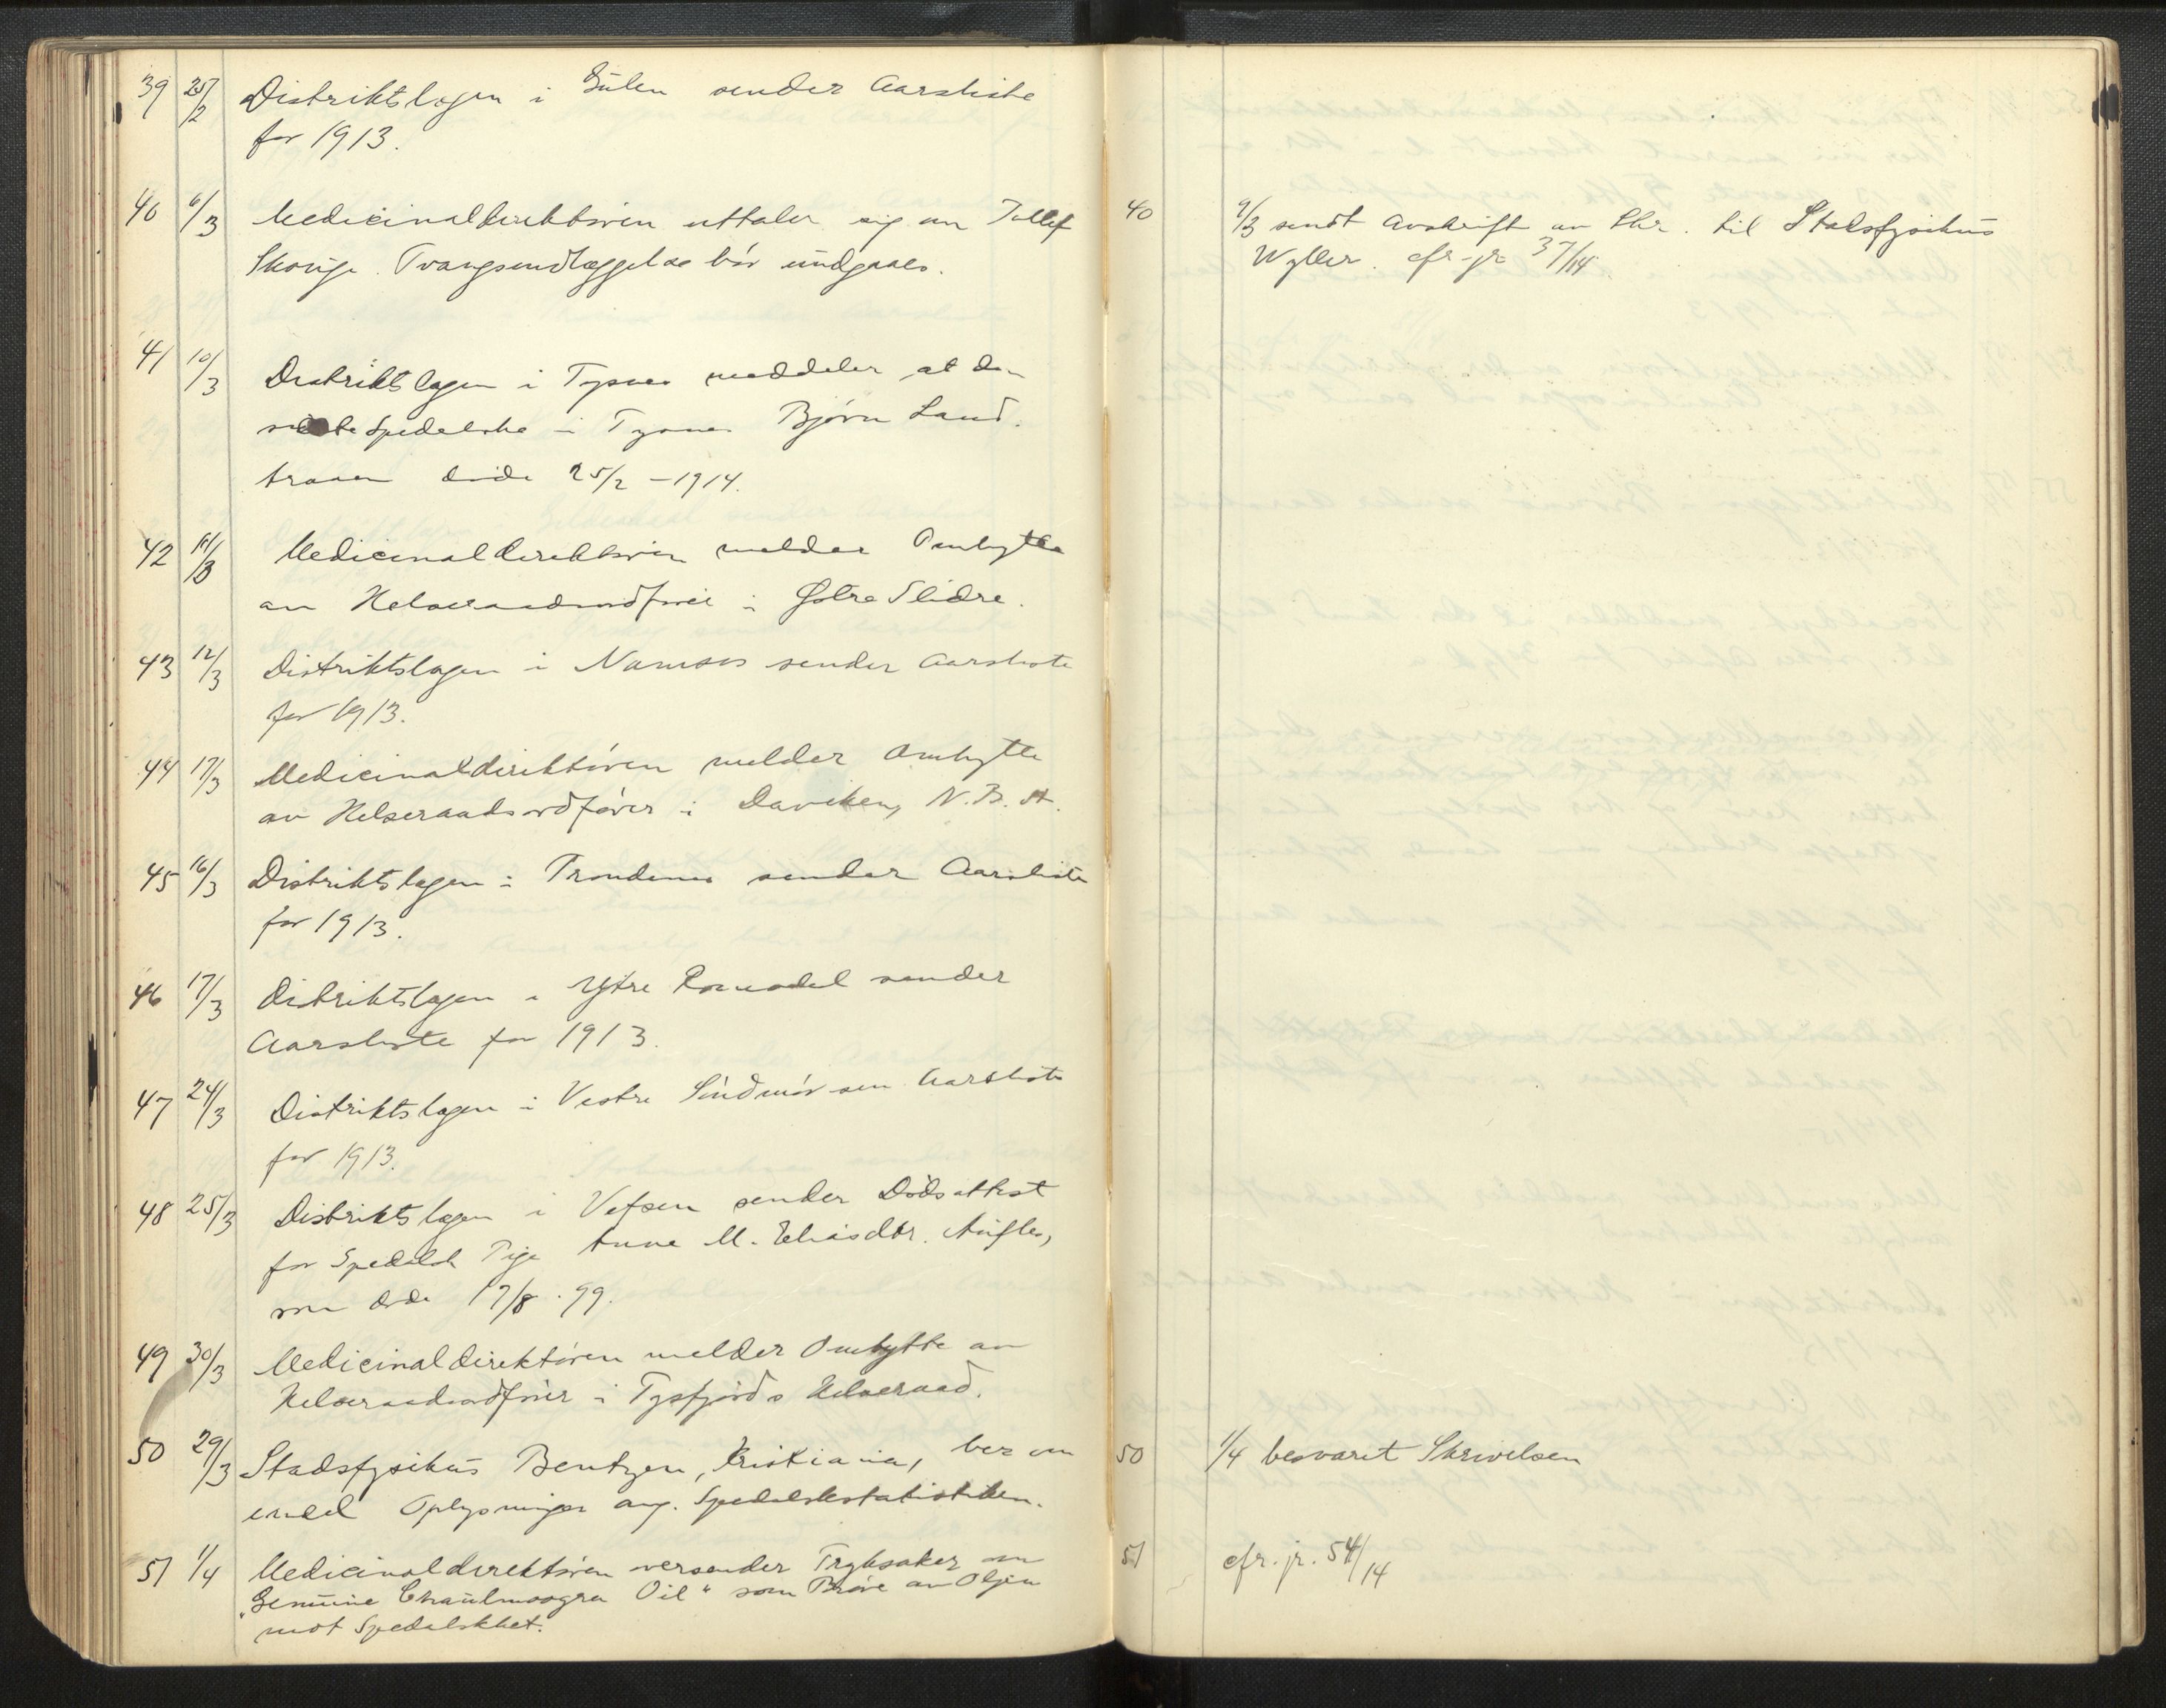 39 25/2 Distriktslægen i Gulen sender Aarsliste
for 1913.
40 6/3 Medicinaldirektøren uttaler sig om Tallef
Skorge. Tvangsindlæggelse bør undgaaes.
41 10/3 Distriktslægen i Tysnes meddeler at den
sidste Spedalske i Tysnes Bjørn Land-
traaen døde 25/2 - 1914.
42 11/3 Medicinaldirektøren melder Ombytte
av Helseraadsordfører i Østre Slidre.
43 12/3 Distriktslægen i Namsos sender Aarsliste
for 1913.
44 17/3 Medicinaldirektøren melder Ombytte
av Helseraadsordfører i Daviken, N. B. A.
45 16/3 Distriktslægen i Trondenes sender Aarsliste
for 1913.
46 17/3 Distriktslægen i Ytre Romsdal sender
Aarsliste for 1913.
47 24/3 Distriktslægen i Vestre Søndmør sen Aarsliste
for 1913.
48 25/3 Distriktslægen i Vefsen sender Dødsattest
for Spedalsk Pige Anne M. Eliasdtr.
som døde 17/8 . 99.
49 30/3 Medicinaldirektøren melder Ombytte av
Helseraadsordfører i Tysfjords Helseraad.
50 29/3 Stadsfysikus Bentzen, Kristiania, ber om
endel Oplysninger ang. Spedalskestatistiken.
51 1/4 Medicinaldirektøren versender Tryksaker om
"Genuine Chaulmoogra Oil" som Prøve av Oljen
mot Spedalskhet.
40 9/3 sendt Avskrift av Skr. til Stadsfysikus
Wyller. cfr. jr. 37/14.
50 1/4 besvaret Skrivelsen
51 cfr. jr. 54/14